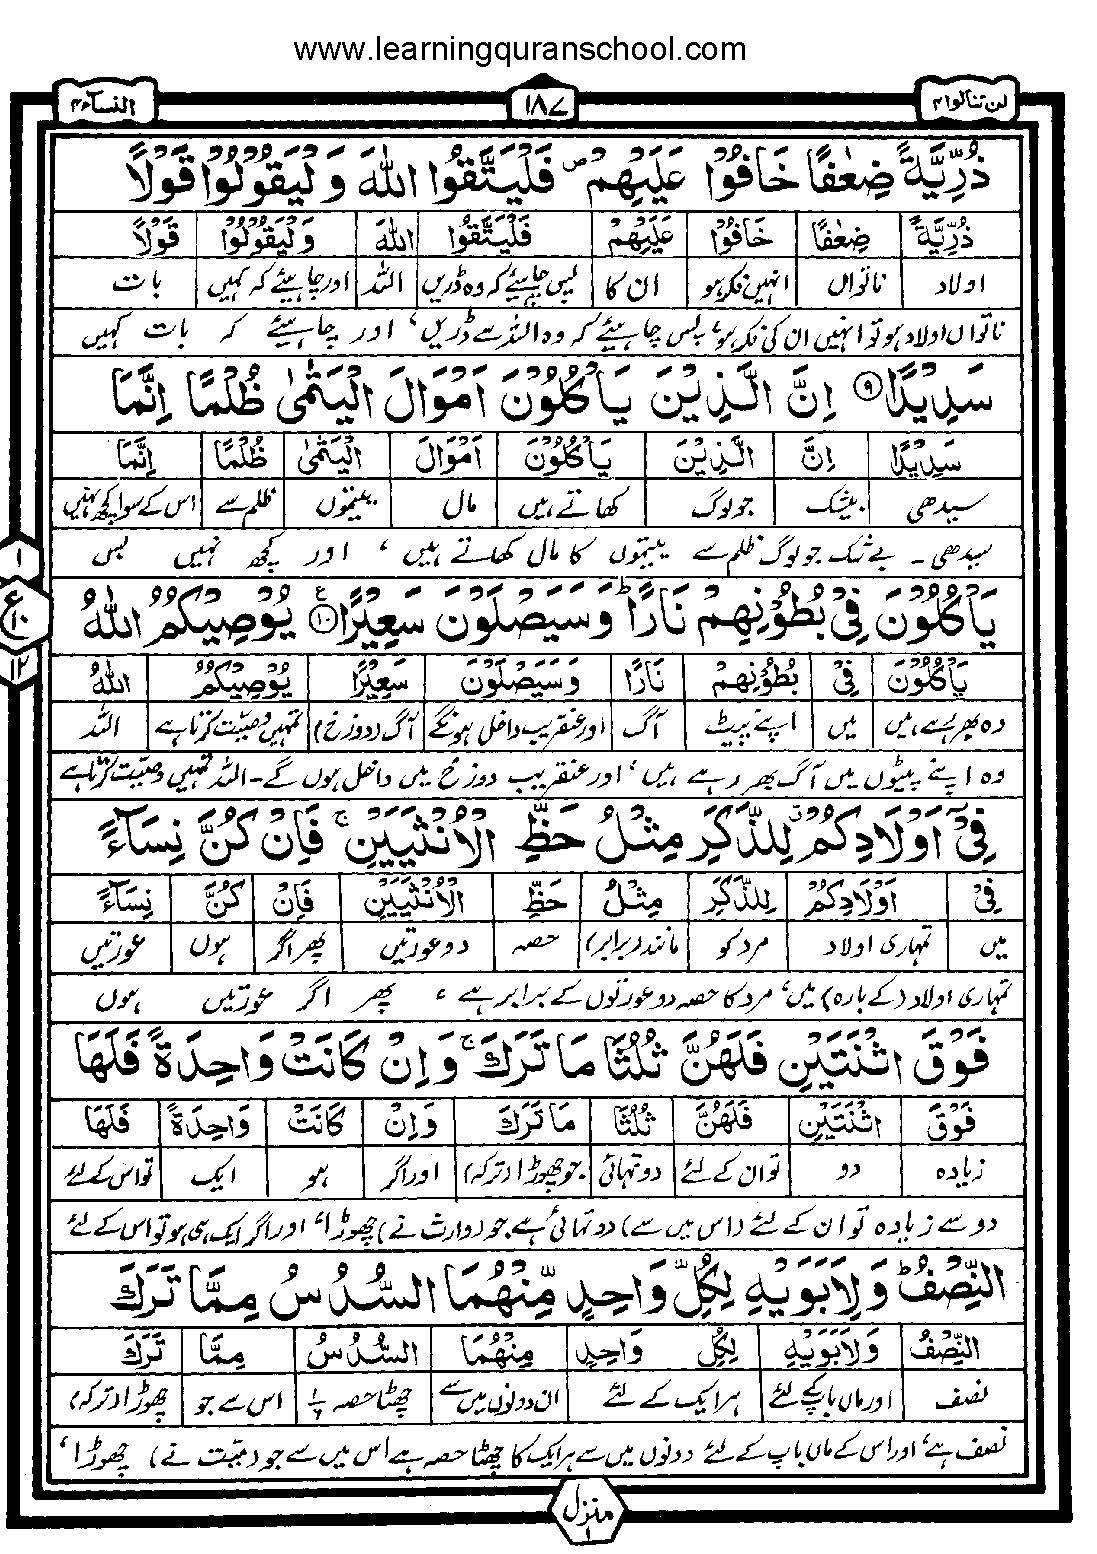 www.learningquranschool.com
لن تنالوا ۴
۱۸۷
النسآء ۴
ذُرِّیَّةً ضِعٰفًا خَافُوْا عَلَیْهِمْ ۪ فَلْیَتَّقُوا اللّٰهَ وَ لْیَقُوْلُوْا قَوْلًا
ذُرِّیَّةً ضِعٰفًا خَافُوْا عَلَیْهِمْ فَلْیَتَّقُوا اللّٰهَ وَلْیَقُوْلُوْا قَوْلًا
اولاد ناتواں انہیں فکر ہو ان کا پس چاہیئے کہ وہ ڈریں اللہ اور چاہیئے کہ کہیں بات
ناتواں اولاد ہو تو انہیں ان کی فکر ہو، پس چاہیئے کہ وہ اللہ سے ڈریں، اور چاہیئے کہ بات کہیں
سَدِیْدًا ۹ اِنَّ الَّذِیْنَ یَاْكُلُوْنَ اَمْوَالَ الْیَتٰمٰى ظُلْمًا اِنَّمَا
سَدِیْدًا اِنَّ الَّذِیْنَ یَاْكُلُوْنَ اَمْوَالَ الْیَتٰمٰى ظُلْمًا اِنَّمَا
سیدھی بیشک جو لوگ کھاتے ہیں مال یتیموں ظلم سے اس کے سوا کچھ نہیں
سیدھی۔ بے شک جو لوگ ظلم سے یتیموں کا مال کھاتے ہیں، اور کچھ نہیں بس
۱
ع
۱۰
۱۲
یَاْكُلُوْنَ فِیْ بُطُوْنِهِمْ نَارًا ؕ وَ سَیَصْلَوْنَ سَعِیْرًا ۱۰ یُوْصِیْكُمُ اللّٰهُ
یَاْكُلُوْنَ فِیْ بُطُوْنِهِمْ نَارًا وَسَیَصْلَوْنَ سَعِیْرًا یُوْصِیْكُمُ اللّٰهُ
وہ بھر رہے ہیں میں اپنے پیٹ آگ اور عنقریب داخل ہونگے آگ (دوزخ) تمہیں وصیّت کرتا ہے اللہ
وہ اپنے پیٹوں میں آگ بھر رہے ہیں، اور عنقریب دوزخ میں داخل ہوں گے۔ اللہ تمہیں وصیّت کرتا ہے
فِیْۤ اَوْلَادِكُمْ لِلذَّكَرِ مِثْلُ حَظِّ الْاُنْثَیَیْنِ ۚ فَاِنْ كُنَّ نِسَآءً
فِیْ اَوْلَادِكُمْ لِلذَّكَرِ مِثْلُ حَظِّ الْاُنْثَیَیْنِ فَاِنْ كُنَّ نِسَآءً
میں تمہاری اولاد مرد کو مانند (برابر) حصہ دو عورتیں پھر اگر ہوں عورتیں
تمہاری اولاد (کے بارہ) میں، مرد کا حصہ دو عورتوں کے برابر ہے، پھر اگر عورتیں ہوں
فَوْقَ اثْنَتَیْنِ فَلَهُنَّ ثُلُثَا مَا تَرَكَ ۚ وَ اِنْ كَانَتْ وَاحِدَةً فَلَهَا
فَوْقَ اثْنَتَیْنِ فَلَهُنَّ ثُلُثَا مَا تَرَكَ وَاِنْ كَانَتْ وَاحِدَةً فَلَهَا
زیادہ دو تو ان کے لئے دو تہائی جو چھوڑا (ترکہ) اور اگر ہو ایک تو اس کے لئے
دو سے زیادہ تو ان کے لئے (اس میں سے) دو تہائی ہے جو (وارث نے) چھوڑا، اور اگر ایک ہی ہو تو اس کے لئے
النِّصْفُ ؕ وَ لِاَبَوَیْهِ لِكُلِّ وَاحِدٍ مِّنْهُمَا السُّدُسُ مِمَّا تَرَكَ
النِّصْفُ وَلِاَبَوَیْهِ لِكُلِّ وَاحِدٍ مِنْهُمَا السُّدُسُ مِمَّا تَرَكَ
نصف اور ماں باپ کے لئے ہر ایک کے لئے ان دونوں میں سے چھٹا حصہ ۱/۶ اس سے جو چھوڑا (ترکہ)
نصف ہے، اور اس کے ماں باپ کے لئے دونوں میں سے ہر ایک کا چھٹا حصہ ہے اس میں سے جو (میّت نے) چھوڑا،
منزل ۱